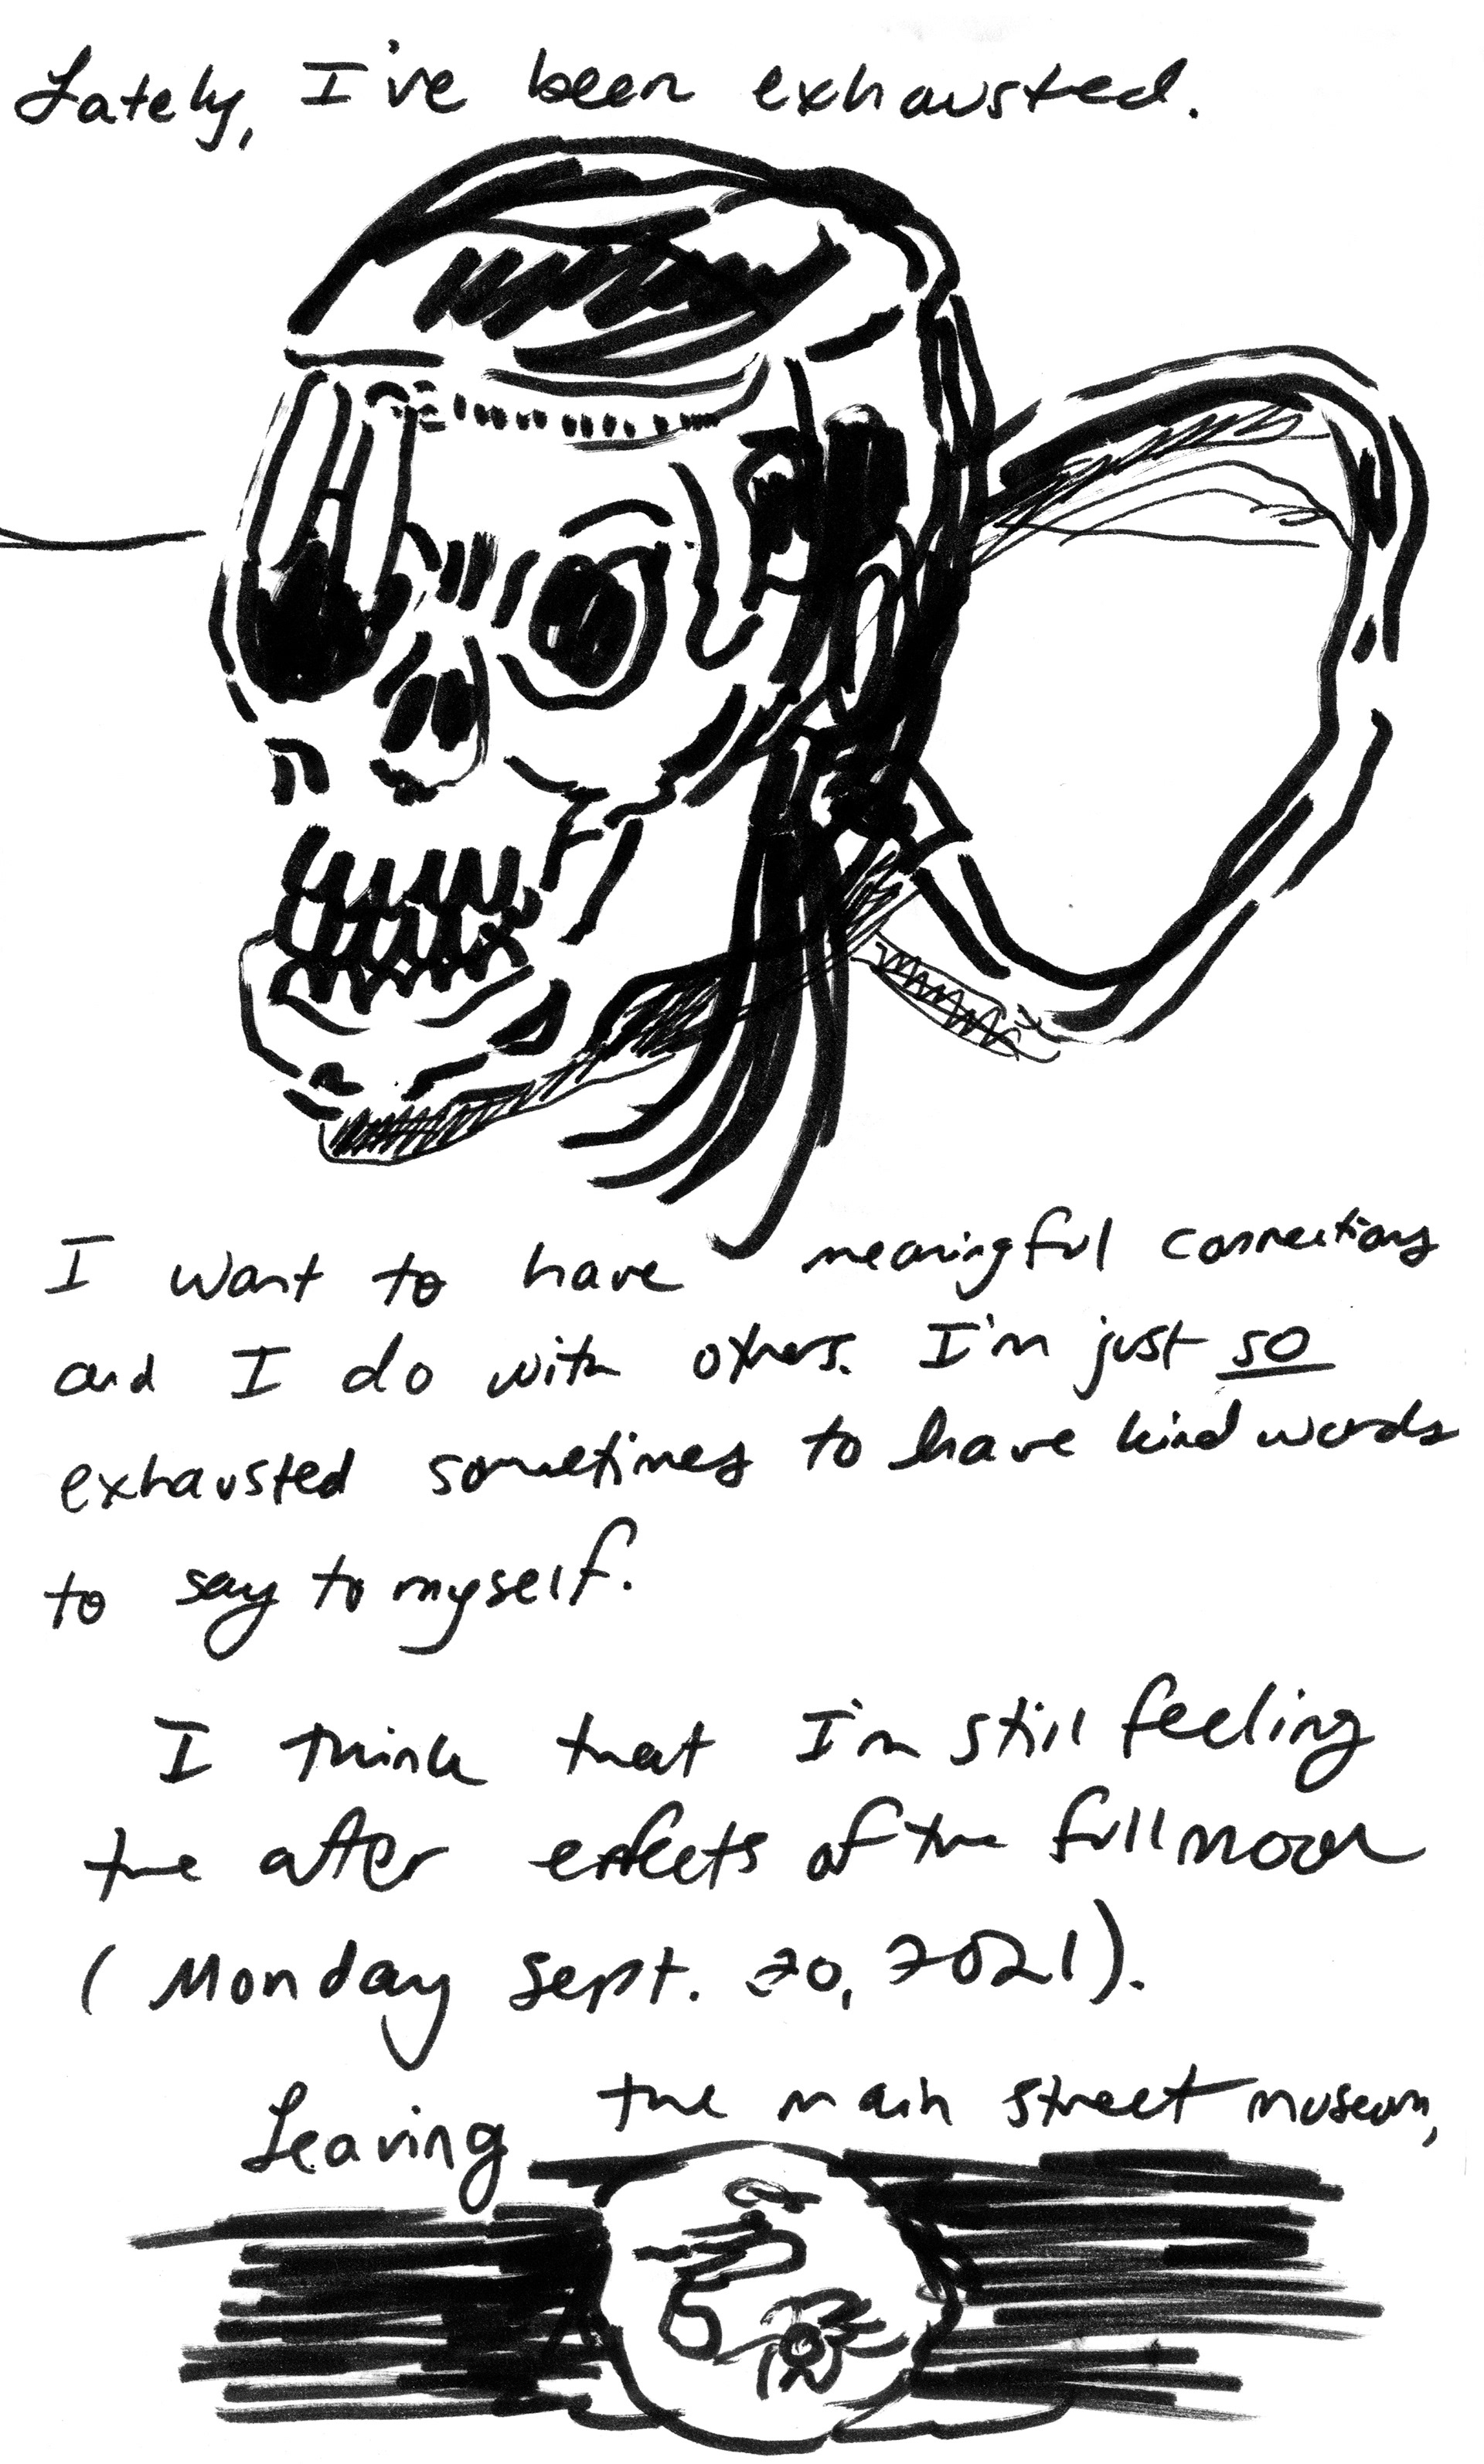 Lately, I've been exhausted.
I want to have meaningful connections
and I do with others. I'm just so
exhausted sometimes to have kind words
to say to myself.
I think that I'm still feeling
the after effects of the full moon
(Monday Sept. 20, 2021).
Leaving the main street museum,